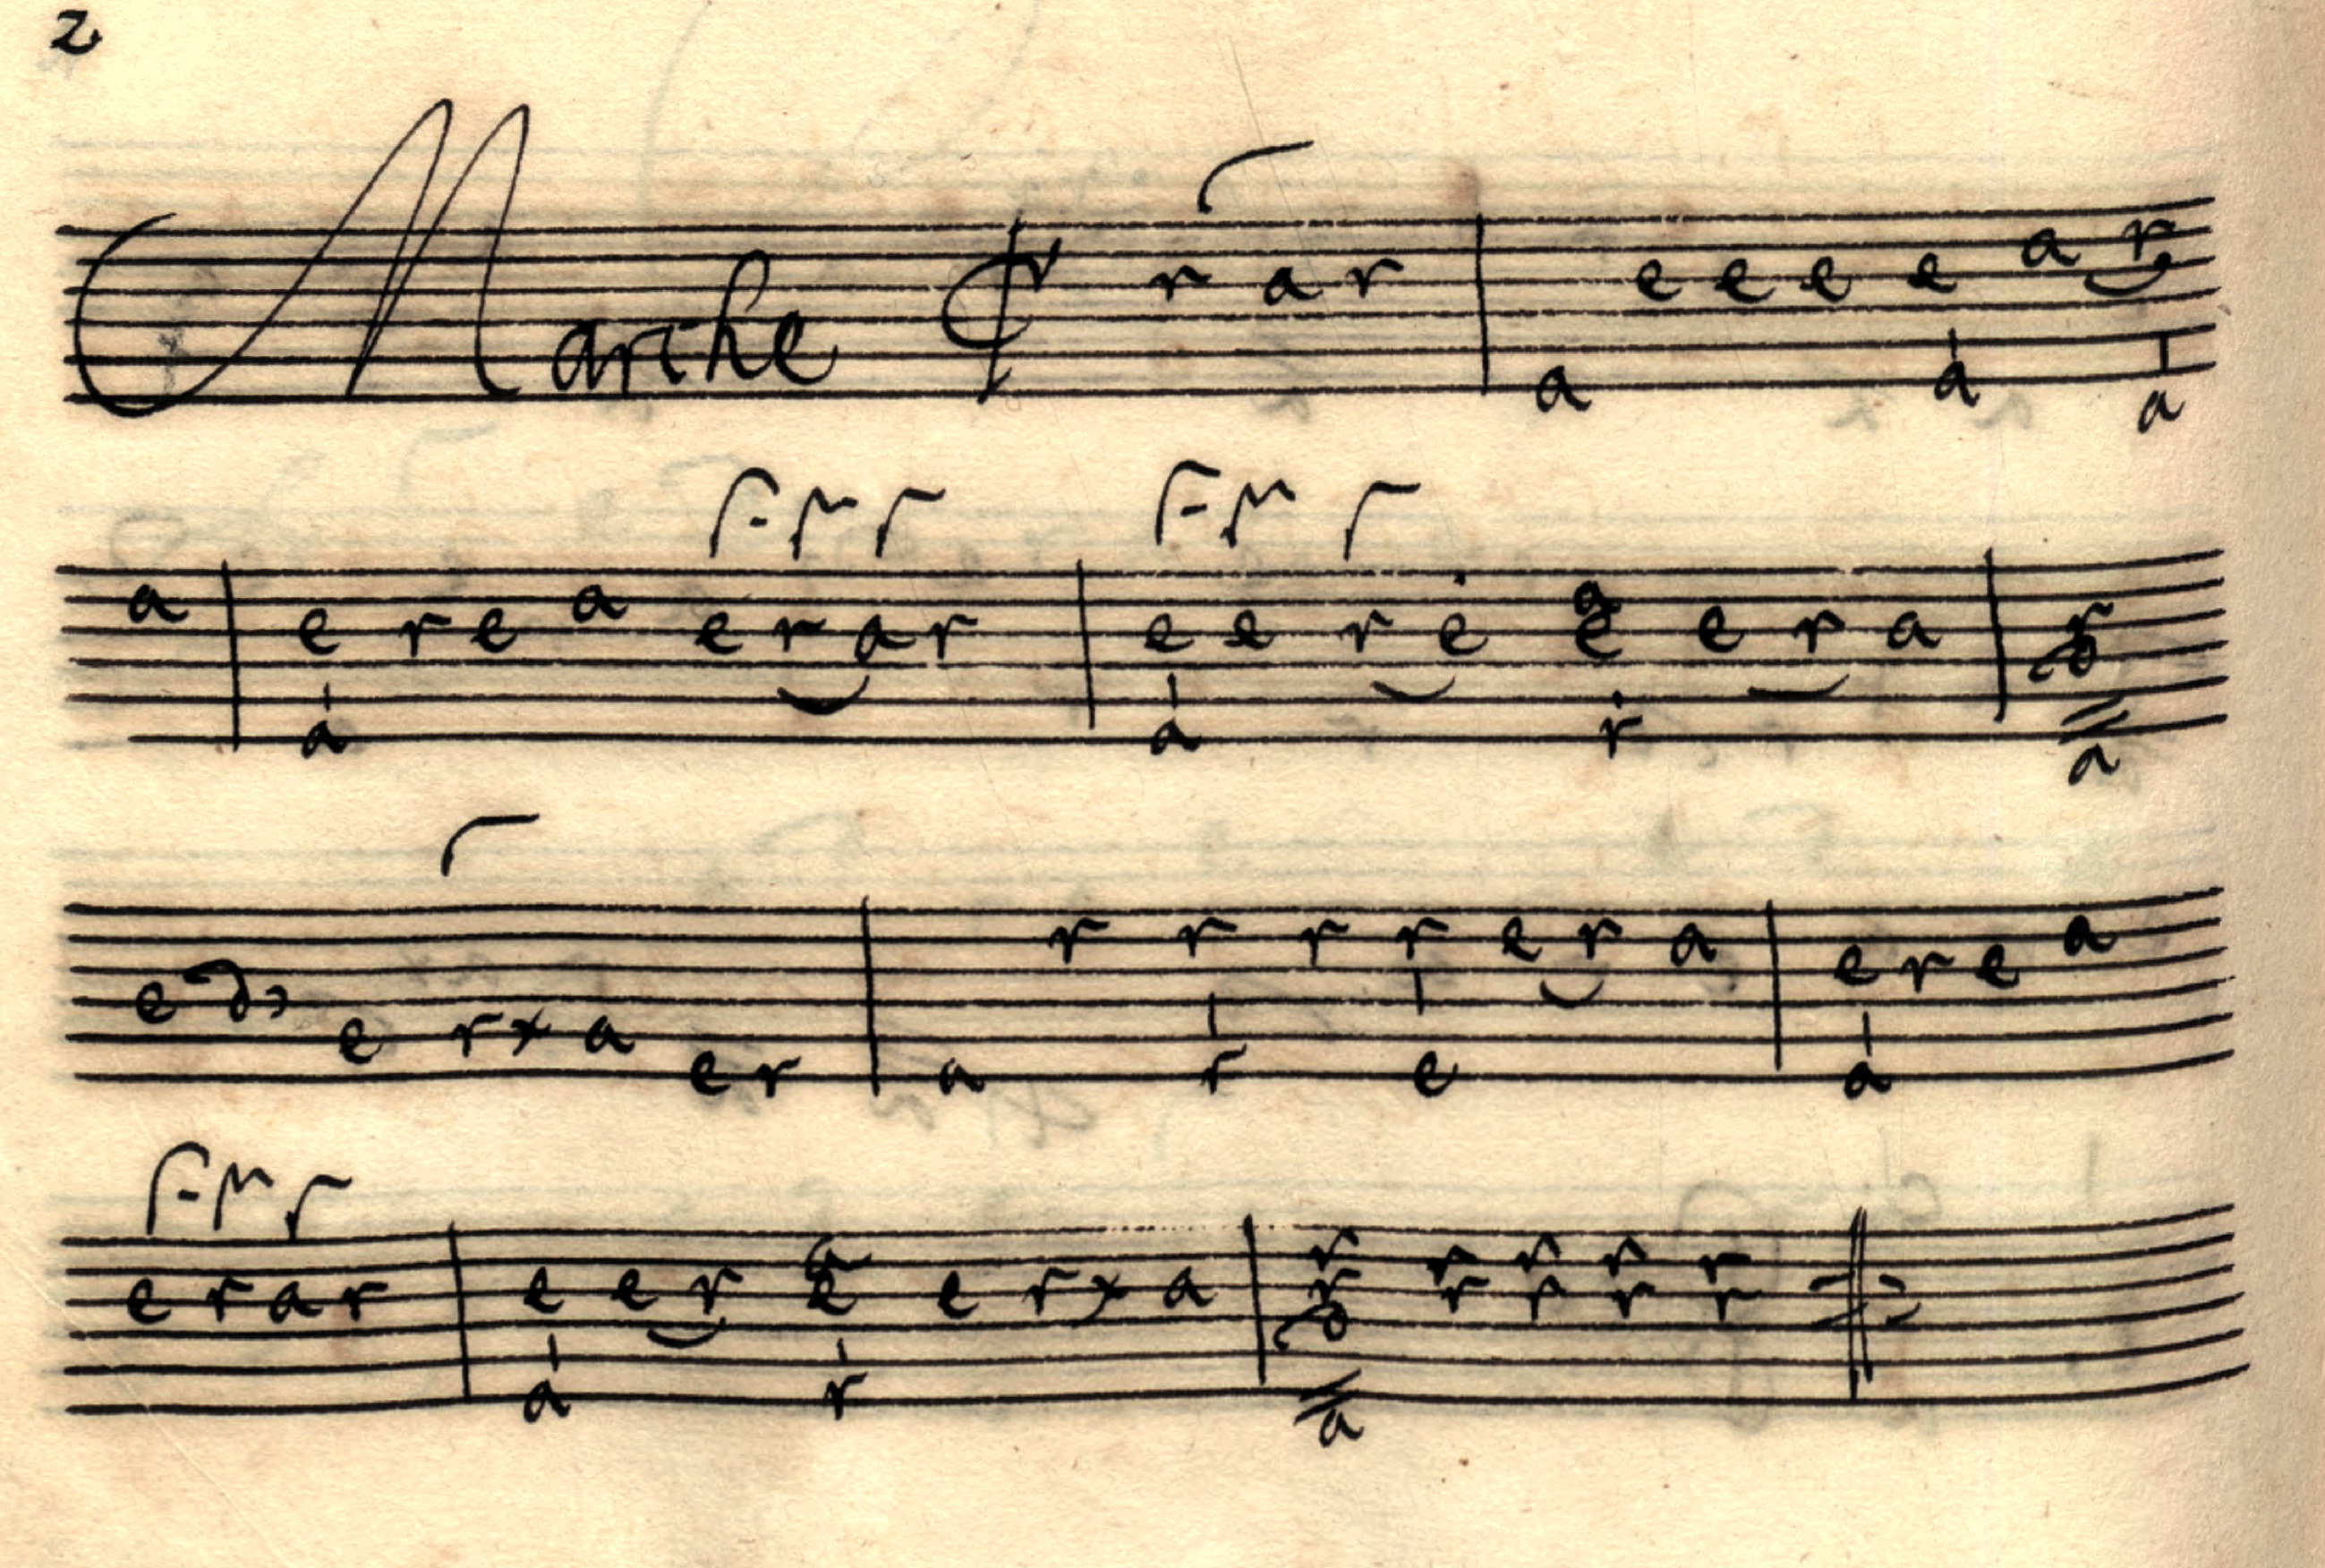 2
Marche ¢ r a r a e e e e a r a a
a e r e a e r a r e e r e a e e r a r
a a r a
e d e r x a e r a r r r r e r a e r e a
r e a
e r a r e e r a e e r x a r r r r r r r r r r
a r a